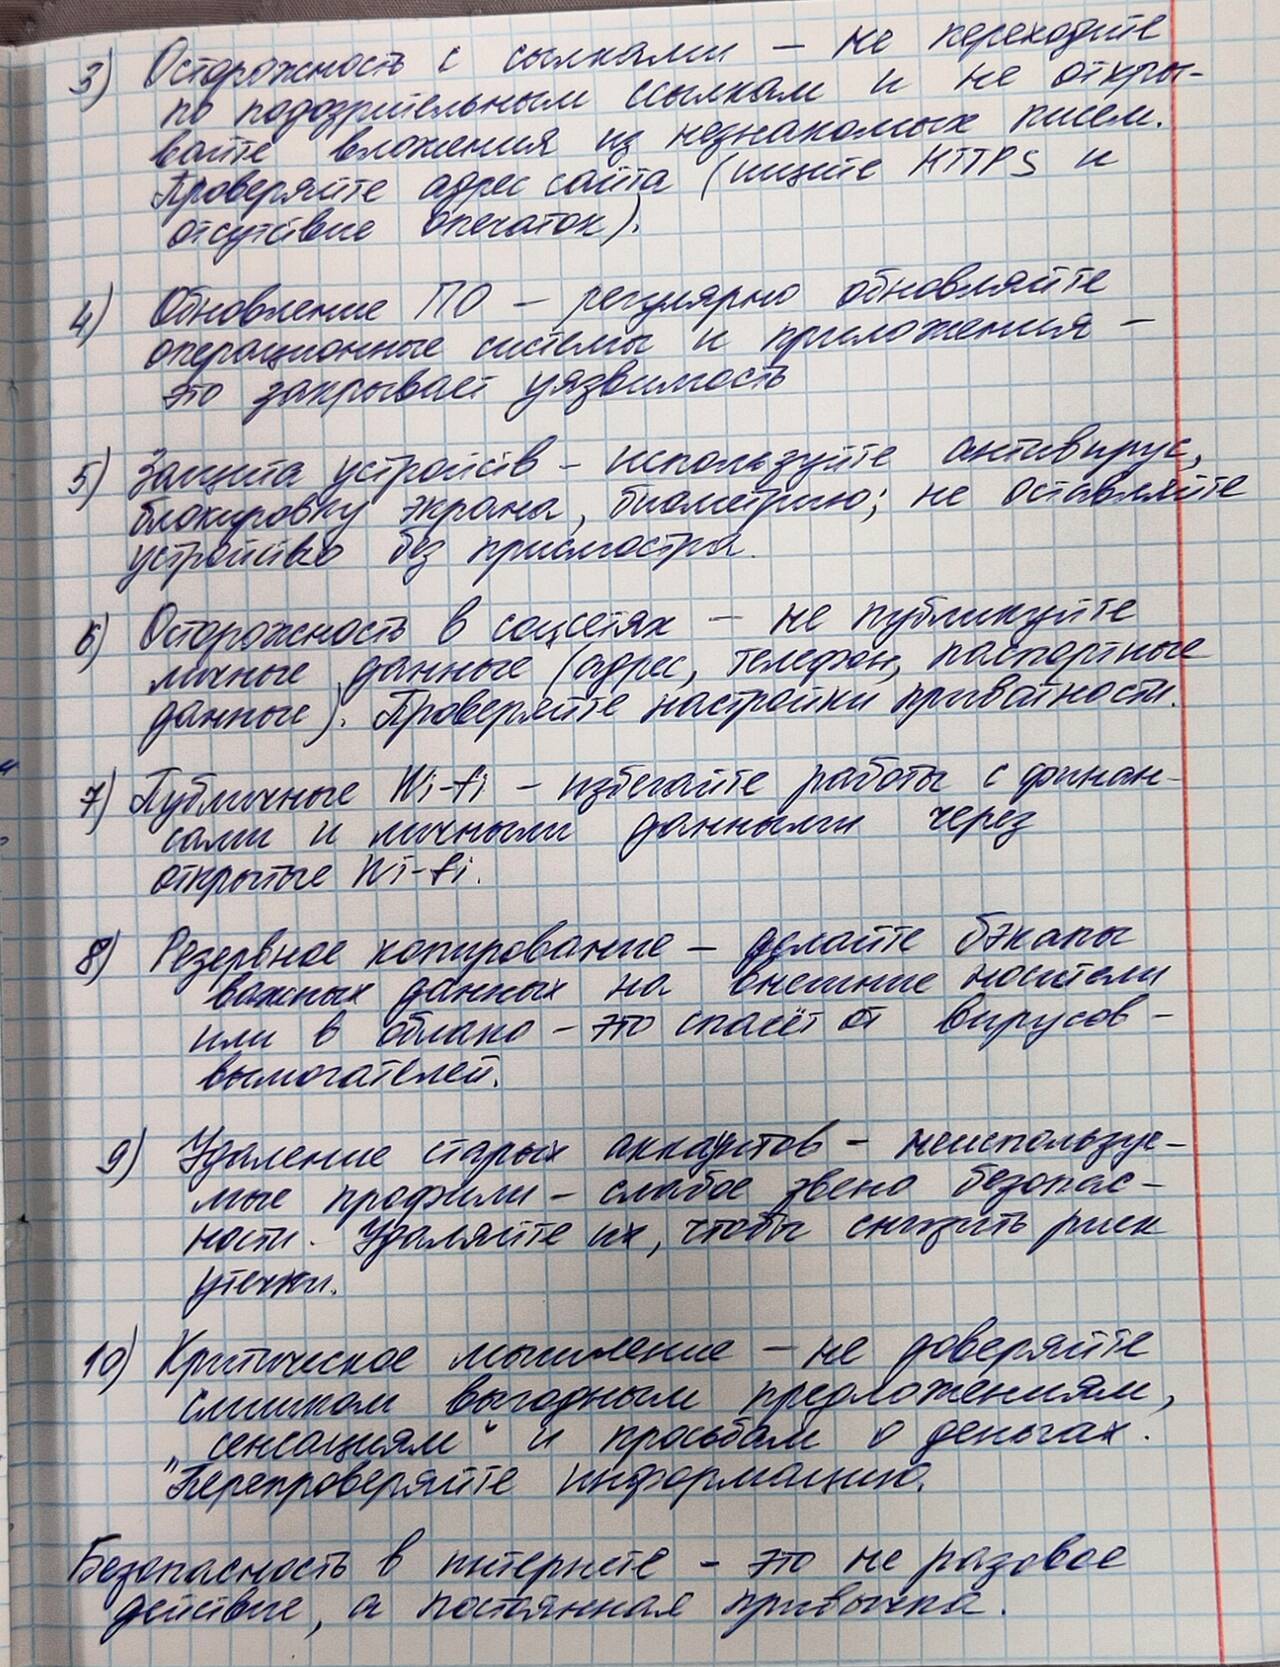 3) Осторожность с сылками – не переходите
по подозрительным ссылкам и не откры-
вайте вложения из незнакомых писем.
Проверяйте адрес сайта (ищите HTTPS и
отсутствие опечаток).
4) Обновление ПО – регулярно обновляйте
операционные системы и приложения –
это закрывает уязвимость
5) Защита устройств – используйте антивирус,
блокировку экрана, биометрию; не оставляйте
устройство без присмотра.
6) Осторожность в соцсетях – не публикуйте
личные данные (адрес, телефон, паспортные
данные). Проверяйте настройки приватности.
7) Публичные Wi-fi – избегайте работы с финан-
сами и личными данными через
открытые Wi-fi.
8) Резервное копирование – делайте бэкапы
важных данных на внешние носители
или в облако – это спасёт от вирусов –
вымогателей.
9) Удаление старых аккаунтов – неиспользуе-
мые профили – слабое звено безопас-
ности. Удаляйте их, чтобы снизить риск
утечки.
10) Критическое мышление – не доверяйте
слишком выгодным предложениям,
„сенсациям“ и просьбам о деньгах.
Перепроверяйте информацию.
Безопасность в интернете – это не разовое
действие, а постоянная привычка.